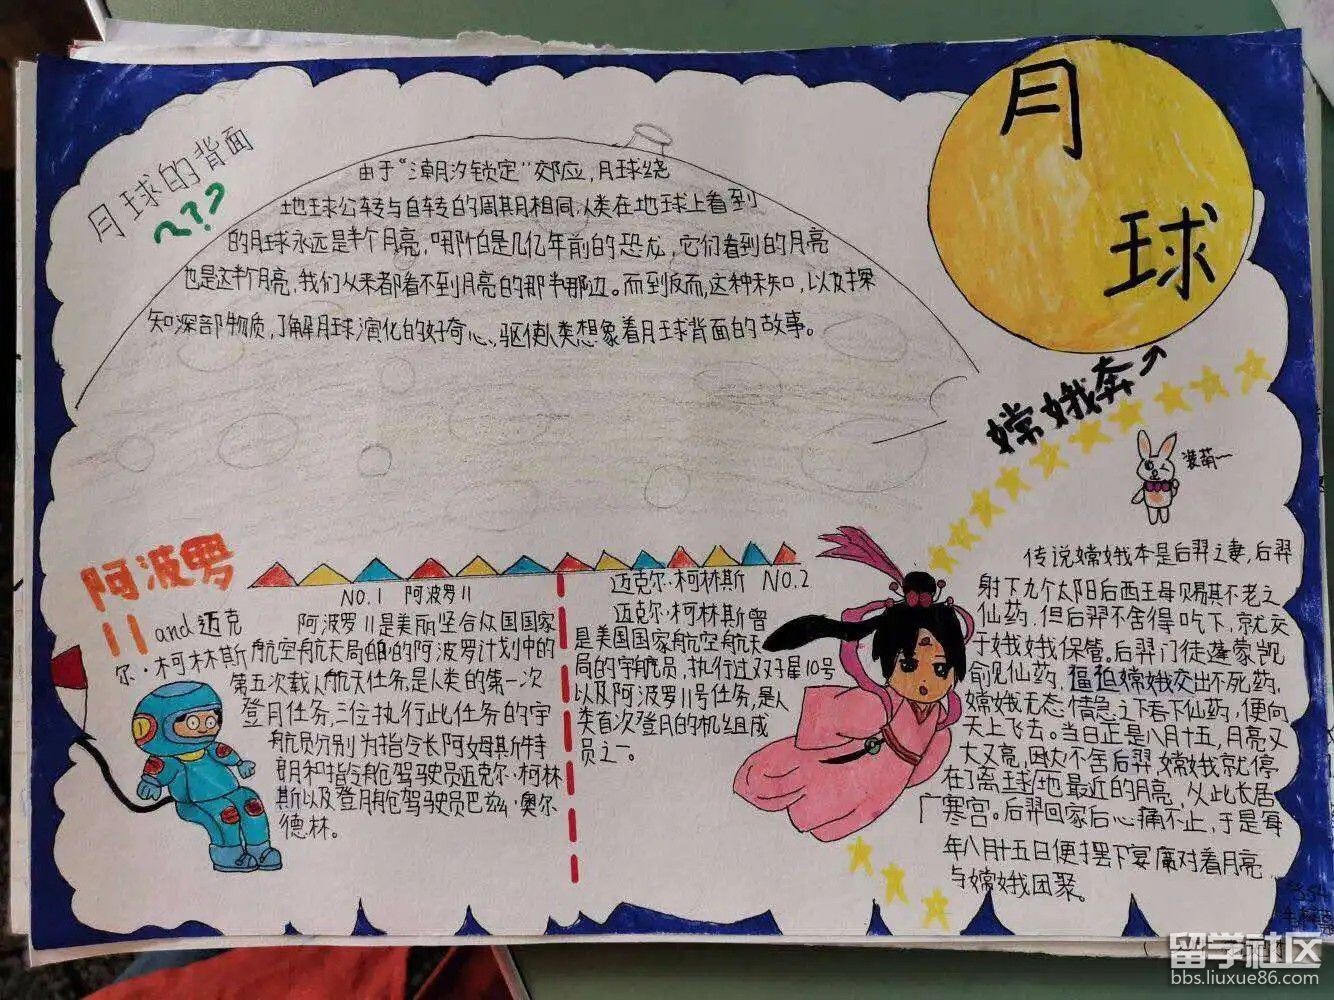 月球
月球的背面
???
由于“潮汐锁定”效应,月球绕
地球公转与自转的周期相同,人类在地球上看到
的月球永远是半个月亮,哪怕是几亿年前的恐龙,它们看到的月亮
也是这半个月亮,我们从来都看不到月亮的那半那边。而到反而,这种未知,以及探
知深部物质,了解月球演化的好奇心、驱使人类想象着月球背面的故事。
嫦娥奔↗
装萌~
阿波罗
11 and 迈克
尔·柯林斯
NO.1 阿波罗11
阿波罗11是美丽坚合众国国家
航空航天局的的阿波罗计划中的
第五次载人航天任务,是人类的第一次
登月任务,三位执行此任务的宇
航员分别为指令长阿姆斯特
朗和指令舱驾驶员迈克尔·柯林
斯以及登月舱驾驶员巴兹·奥尔
德林。
迈克尔·柯林斯 NO.2
迈克尔·柯林斯曾
是美国国家航空航天
局的宇航员,执行过双子星10号
以及阿波罗11号任务,是人
类首次登月的机组成
员之一。
传说嫦娥本是后羿之妻,后羿
射下九个太阳后西王母赐其不老之
仙药,但后羿不舍得吃下,就交
于娥娥保管。后羿门徒蓬蒙觊
觎见仙药,逼迫嫦娥交出不死药,
嫦娥无态情急之下吞下仙药,便向
天上飞去。当日正是八月十五,月亮又
大又亮,因为不舍后羿,嫦娥就停
在了离球地最近的月亮,从此长居
广寒宫。后羿回家后心痛不止,于是每
年八月十五日便摆下宴席对着月亮
与嫦娥团聚。
留学社区
bbs.liuxue86.com